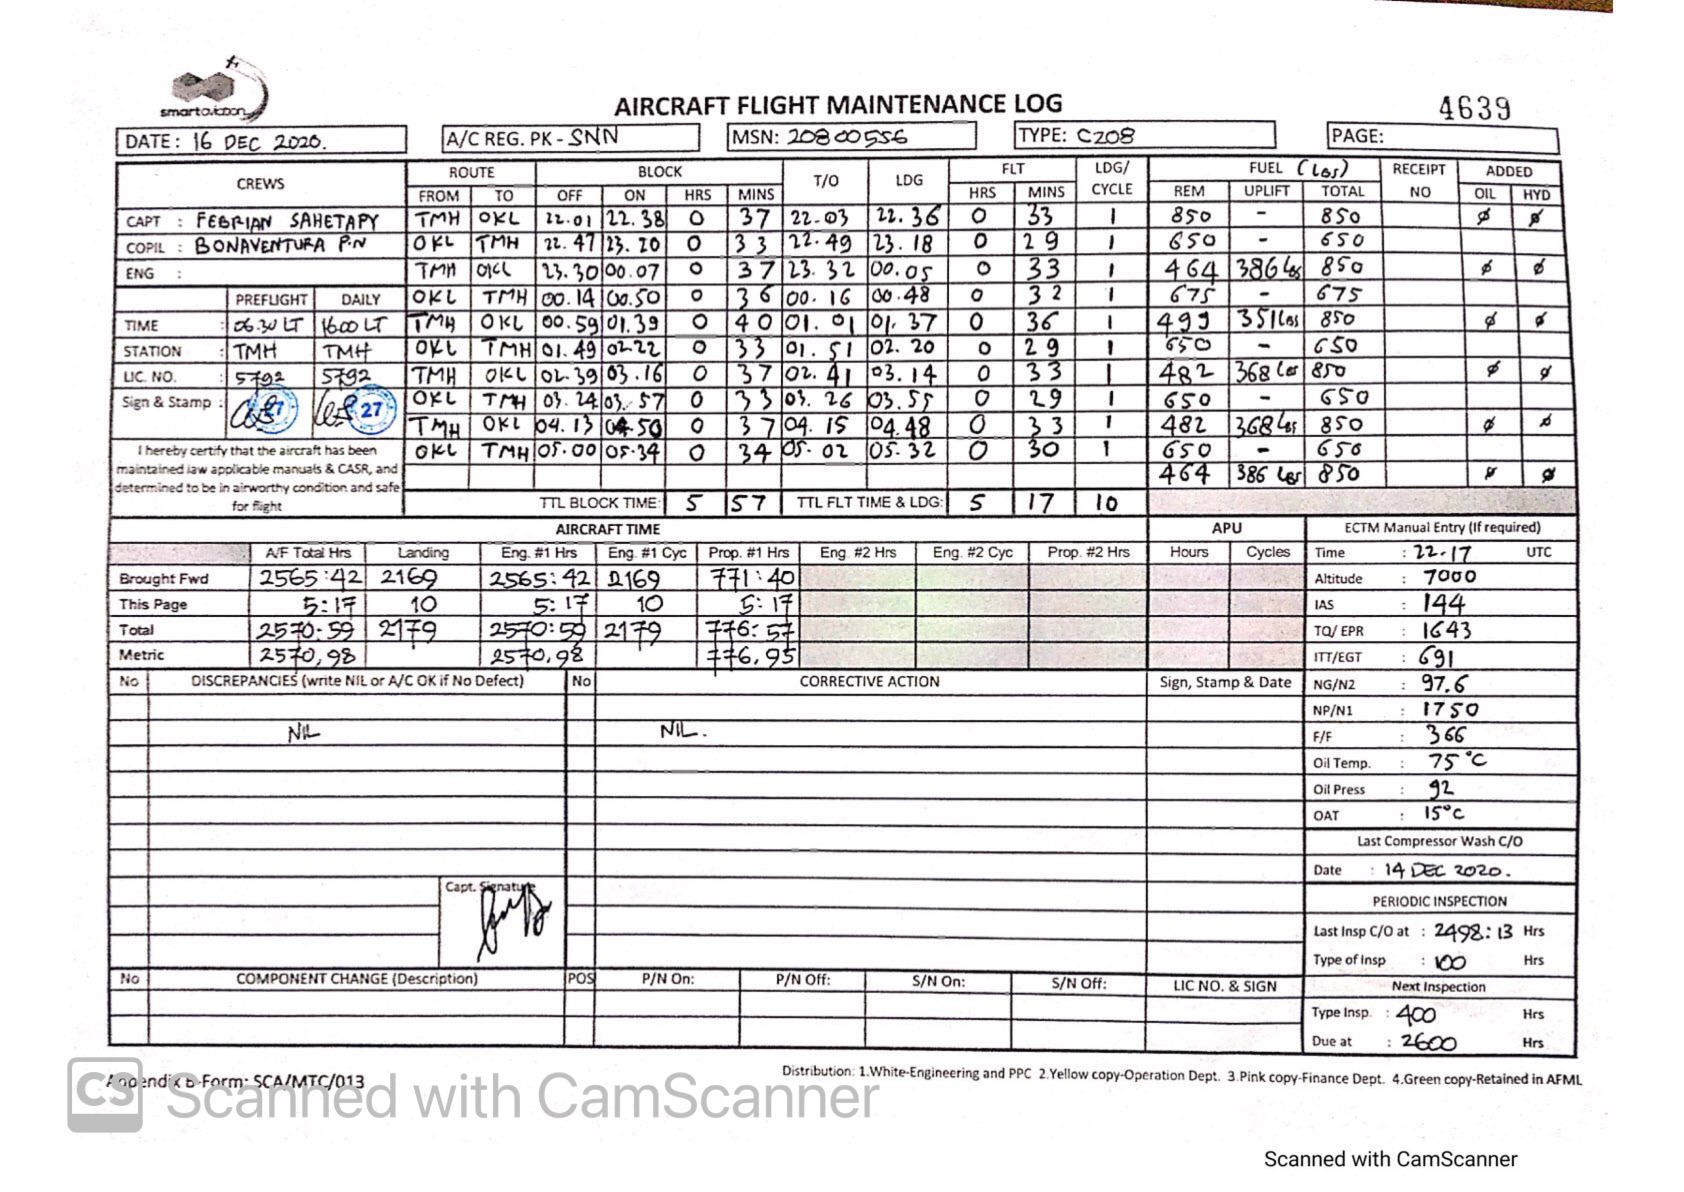 smartaviation
AIRCRAFT FLIGHT MAINTENANCE LOG
4639
DATE: 16 DEC 2020. A/C REG. PK - SNN MSN: 20800556 TYPE: C208 PAGE:
CREWS ROUTE BLOCK T/O LDG FLT LDG/ CYCLE FUEL (Lbs) RECEIPT NO ADDED
FROM TO OFF ON HRS MINS HRS MINS REM UPLIFT TOTAL OIL HYD
CAPT : FEBRIAN SAHETAPY TMH OKL 22.01 22.38 0 37 22.03 22.36 0 33 1 850 - 850 ø ø
COPIL : BONAVENTURA P.N OKL TMH 22.47 23.20 0 33 22.49 23.18 0 29 1 650 - 650
ENG : TMH OKL 23.30 00.07 0 37 23.32 00.05 0 33 1 464 386 Lbs 850 ø ø
PREFLIGHT DAILY OKL TMH 00.14 00.50 0 36 00.16 00.48 0 32 1 675 - 675
TIME : 06.30 LT 1600 LT TMH OKL 00.59 01.39 0 40 01.01 01.37 0 36 1 499 351 Lbs 850 ø ø
STATION : TMH TMH OKL TMH 01.49 02.22 0 33 01.51 02.20 0 29 1 650 - 650
LIC. NO. : 5792 5792 TMH OKL 02.39 03.16 0 37 02.41 03.14 0 33 1 482 368 Lbs 850 ø ø
Sign & Stamp : 27 27 OKL TMH 03.24 03.57 0 33 03.26 03.55 0 29 1 650 - 650
TMH OKL 04.13 04.50 0 37 04.15 04.48 0 33 1 482 368 Lbs 850 ø ø
I hereby certify that the aircraft has been OKL TMH 05.00 05.34 0 34 05.02 05.32 0 30 1 650 - 650
maintained iaw applicable manuals & CASR, and 464 386 Lbs 850 ø ø
determined to be in airworthy condition and safe
for flight TTL BLOCK TIME: 5 57 TTL FLT TIME & LDG: 5 17 10
AIRCRAFT TIME APU ECTM Manual Entry (If required)
A/F Total Hrs Landing Eng. #1 Hrs Eng. #1 Cyc Prop. #1 Hrs Eng. #2 Hrs Eng. #2 Cyc Prop. #2 Hrs Hours Cycles Time : 22.17 UTC
Brought Fwd 2565:42 2169 2565:42 2169 771:40 Altitude : 7000
This Page 5:17 10 5:17 10 5:17 IAS : 144
Total 2570:59 2179 2570:59 2179 776:57 TQ/ EPR : 1643
Metric 2570,98 2570,98 776,95 ITT/EGT : 691
No DISCREPANCIES (write NIL or A/C OK if No Defect) No CORRECTIVE ACTION Sign, Stamp & Date NG/N2 : 97.6
NP/N1 : 1750
NIL NIL. F/F : 366
Oil Temp. : 75°C
Oil Press : 92
OAT : 15°C
Last Compressor Wash C/O
Date : 14 DEC 2020.
Capt. Signature
PERIODIC INSPECTION
Last Insp C/O at : 2498:13 Hrs
Type of Insp : 100 Hrs
No COMPONENT CHANGE (Description) POS P/N On: P/N Off: S/N On: S/N Off: LIC NO. & SIGN Next Inspection
Type Insp. : 400 Hrs
Due at : 2600 Hrs
Appendix B-Form: SCA/MTC/013
Distribution: 1.White-Engineering and PPC 2.Yellow copy-Operation Dept. 3.Pink copy-Finance Dept. 4.Green copy-Retained in AFML
CS Scanned with CamScanner
Scanned with CamScanner